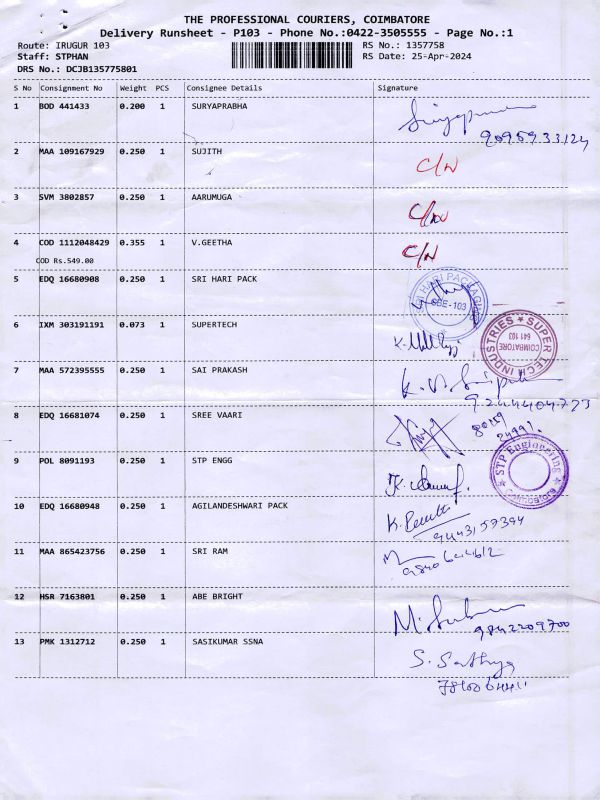 THE PROFESSIONAL COURIERS, COIMBATORE
Delivery Runsheet - P103 - Phone No.:0422-3505555 - Page No.:1
Route: IRUGUR 103
RS No.: 1357758
Staff: STPHAN
RS Date: 25-Apr-2024
DRS No.: DCJB135775801
S No Consignment No Weight PCS Consignee Details Signature
1 BOD 441433 0.200 1 SURYAPRABHA
9095933124
2 MAA 109167929 0.250 1 SUJITH C/N
3 SVM 3802857 0.250 1 AARUMUGA C/N
4 COD 1112048429 0.355 1 V.GEETHA C/N
COD Rs.549.00
5 EDQ 16680908 0.250 1 SRI HARI PACK
SRI HARI PACKAGING
CBE-103
6 IXM 303191191 0.073 1 SUPERTECH
SUPER TECH INDUSTRIES
COIMBATORE
641 103
7 MAA 572395555 0.250 1 SAI PRAKASH
9244404773
8 EDQ 16681074 0.250 1 SREE VAARI
80159
24991.
9 POL 8091193 0.250 1 STP ENGG
STP Engineering
Coimbatore
10 EDQ 16680948 0.250 1 AGILANDESHWARI PACK
9443159394
11 MAA 865423756 0.250 1 SRI RAM
9840644612
12 HSR 7163801 0.250 1 ABE BRIGHT
9842209700
13 PMK 1312712 0.250 1 SASIKUMAR SSNA S. Sathya